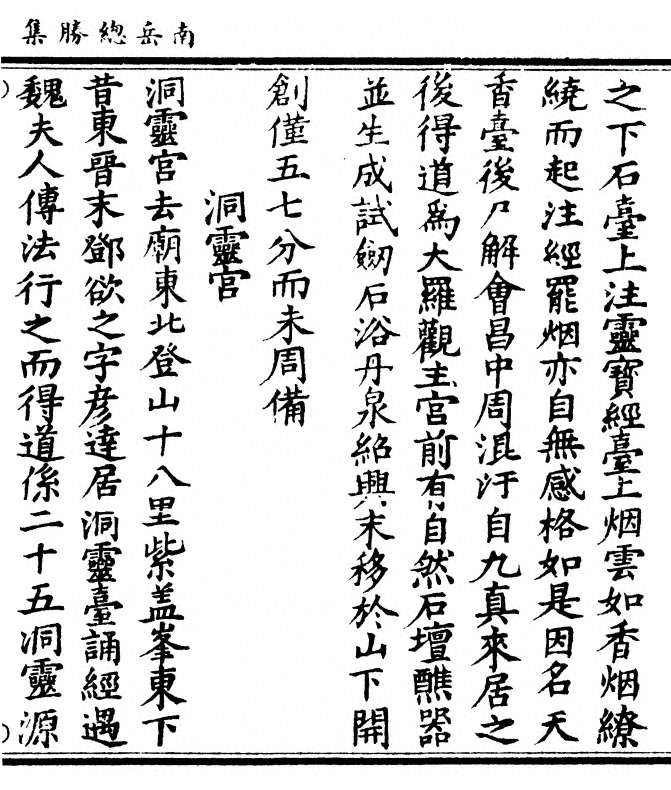 南岳總勝集
之下石臺上注靈寳經臺上烟雲如香烟繚
繞而起注經罷烟亦自無感格如是因名天
香臺後尸解會昌中周混汙自九真來居之
後得道爲大羅觀主宫前有自然石壇醮器
並生成試劒石浴丹泉紹興末移於山下開
創僅五七分而未周備
洞靈宫
洞靈宫去廟東北登山十八里紫盖峯東下
昔東晉末鄧欲之字彦達居洞靈臺誦經遇
魏夫人傳法行之而得道係二十五洞靈源